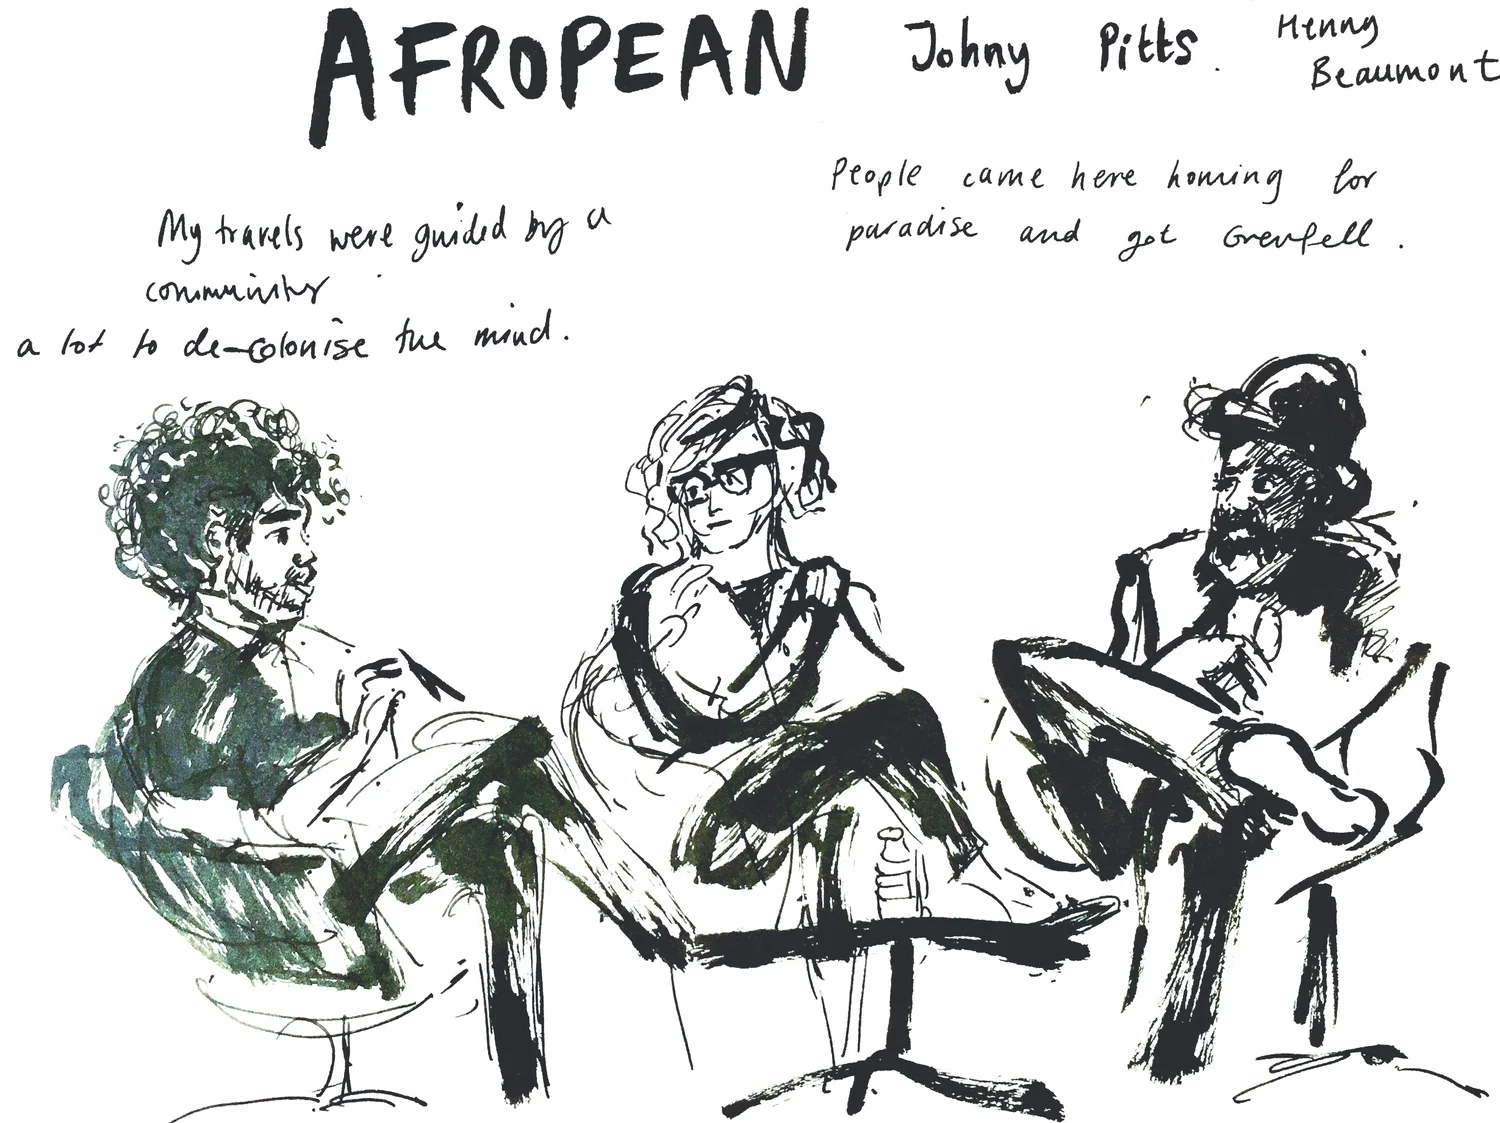 AFROPEAN Johny Pitts.
Henny
Beaumont
People came here homing for
paradise and got Grenfell.
My travels were guided by a
community
a lot to de-colonise the mind.